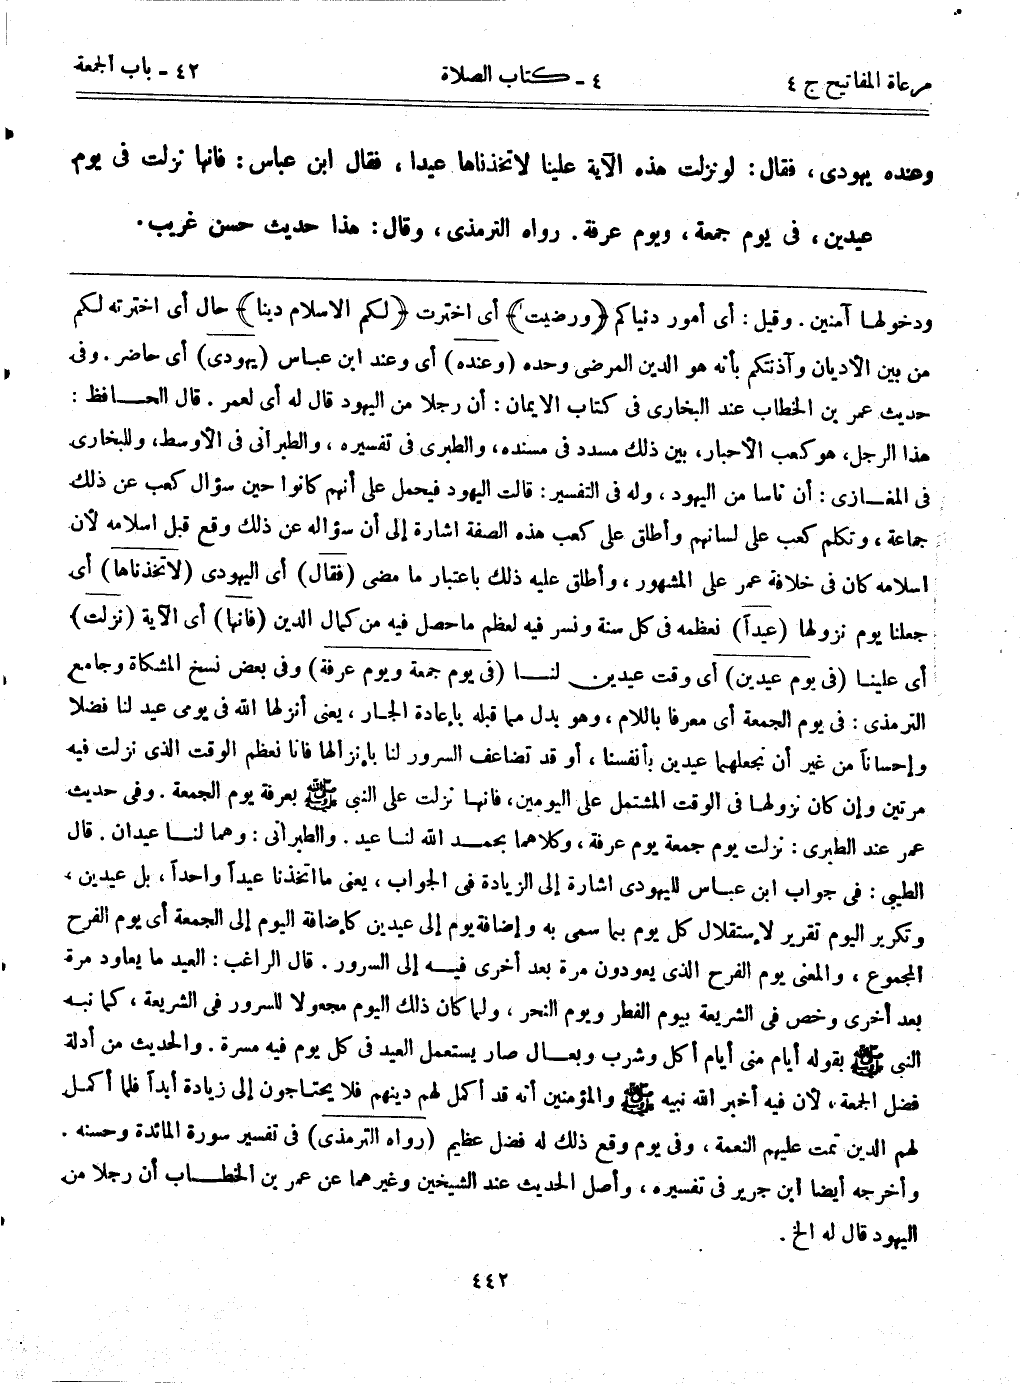 مرعاة المفاتيح ج ٤
٤ - كتاب الصلاة
٤٢ - باب الجمعة
وعنده يهودى، فقال: لو نزلت هذه الآية علينا لاتخذناها عيدا، فقال ابن عباس: فانها نزلت فى يوم
عيدين، فى يوم جمعة، ويوم عرفة. رواه الترمذى، وقال: هذا حديث حسن غريب.
ودخولها آمنين. وقيل: أى أمور دنياكم ﴿ورضيت﴾ أى اخترت ﴿لكم الاسلام دينا﴾ حال أى اخترته لكم
من بين الأديان وآذنتكم بأنه هو الدين المرضى وحده (وعنده) أى وعند ابن عباس (يهودى) أى حاضر. وفى
حديث عمر بن الخطاب عند البخارى فى كتاب الايمان: أن رجلا من اليهود قال له أى لعمر. قال الحافظ:
هذا الرجل، هو كعب الأحبار، بين ذلك مسدد فى مسنده، والطبرى فى تفسيره، والطبرانى فى الأوسط، وللبخارى
فى المغازى: أن ناسا من اليهود، وله فى التفسير: قالت اليهود فيحمل على أنهم كانوا حين سؤال كعب عن ذلك
جماعة، وتكلم كعب على لسانهم وأطلق على كعب هذه الصفة اشارة إلى أن سؤاله عن ذلك وقع قبل اسلامه لأن
اسلامه كان فى خلافة عمر على المشهور، وأطلق عليه ذلك باعتبار ما مضى (فقال) أى اليهودى (لاتخذناها) أى
جعلنا يوم نزولها (عيداً) نعظمه فى كل سنة ونسر فيه لعظم ماحصل فيه من كمال الدين (فانها) أى الآية (نزلت)
أى علينا (فى يوم عيدين) أى وقت عيدين لنا (فى يوم جمعة ويوم عرفة) وفى بعض نسخ المشكاة وجامع
الترمذى: فى يوم الجمعة أى معرفا باللام، وهو بدل مما قبله بإعادة الجار، يعنى أنزلها الله فى يومى عيد لنا فضلا
وإحساناً من غير أن نجعلهما عيدين بأنفسنا، أو قد تضاعف السرور لنا بإنزالها فانا نعظم الوقت الذى نزلت فيه
مرتين وإن كان نزولها فى الوقت المشتمل على اليومين، فانها نزلت على النبى ﷺ بعرفة يوم الجمعة. وفى حديث
عمر عند الطبرى: نزلت يوم جمعة يوم عرفة، وكلاهما بحمد الله لنا عيد. والطبرانى: وهما لنا عيدان. قال
الطيبى: فى جواب ابن عباس لليهودى اشارة إلى الزيادة فى الجواب، يعنى ما اتخذنا عيداً واحداً، بل عيدين،
وتكرير اليوم تقرير لاستقلال كل يوم بما سمى به وإضافة يوم إلى عيدين كإضافة اليوم إلى الجمعة أى يوم الفرح
المجموع، والمعنى يوم الفرح الذى يعودون مرة بعد أخرى فيه إلى السرور. قال الراغب: العيد ما يعاود مرة
بعد أخرى وخص فى الشريعة بيوم الفطر ويوم النحر، ولما كان ذلك اليوم مجعولا للسرور فى الشريعة، كما نبه
النبى ﷺ بقوله أيام منى أيام أكل وشرب وبعال صار يستعمل العيد فى كل يوم فيه مسرة. والحديث من أدلة
فضل الجمعة، لأن فيه أخبر الله نبيه ﷺ والمؤمنين أنه قد أكمل لهم دينهم فلا يحتاجون إلى زيادة أبداً فلما أكمل
لهم الدين تمت عليهم النعمة، وفى يوم وقع ذلك له فضل عظيم (رواه الترمذى) فى تفسير سورة المائدة وحسنه.
وأخرجه أيضا ابن جرير فى تفسيره، وأصل الحديث عند الشيخين وغيرهما عن عمر بن الخطاب أن رجلا من
اليهود قال له الخ.
٤٤٢